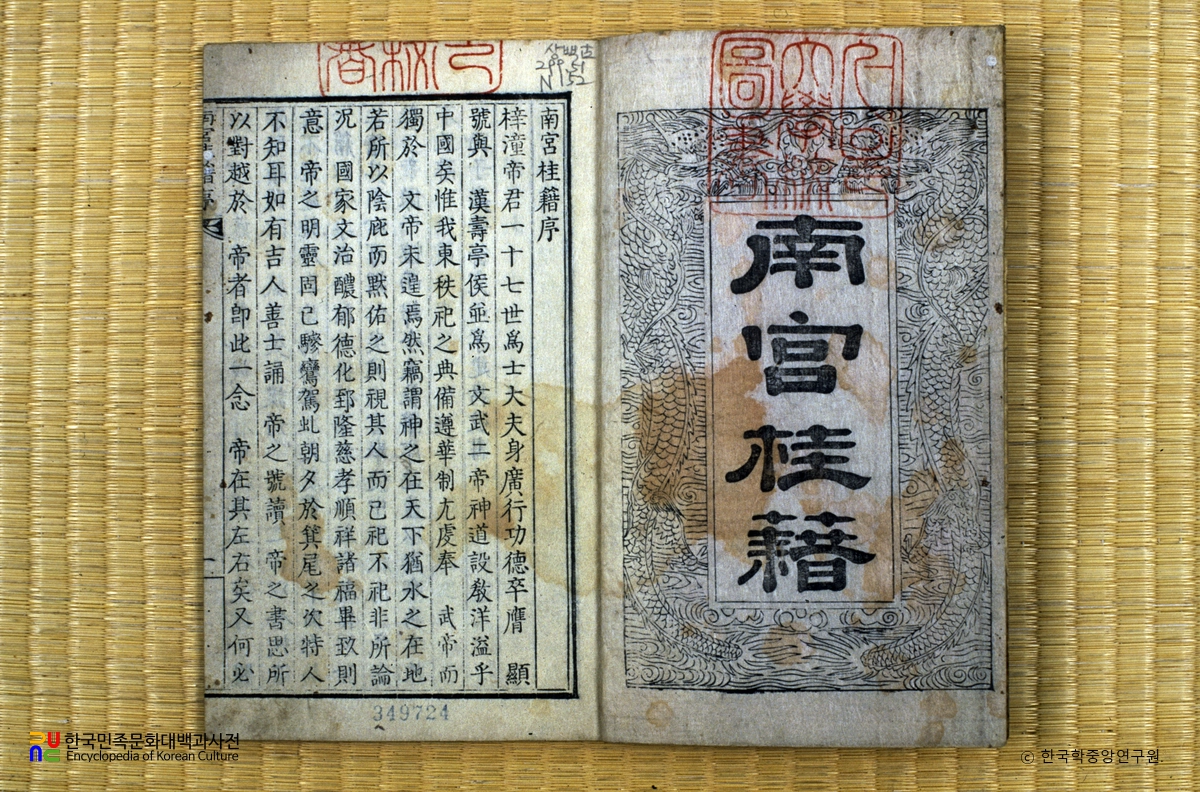 南宮桂籍
南宮桂籍序
梓潼帝君一十七世爲士大夫身廣行功德卒膺 顯
號與 漢壽亭侯並爲 文武二帝神道設敎洋溢乎
中國矣惟我東秩祀之典備遵華制尤虔奉 武帝而
獨於 文帝未遑焉然竊謂神之在天下猶水之在地
若所以陰庇而默佑之則視其人而已祀不祀非所論
况 國家文治醲郁德化郅隆慈孝順祥諸福畢致則
意 帝之明靈固已驂鸞駕虬朝夕於箕尾之次特人
不知耳如有吉人善士誦 帝之號讀 帝之書思所
以對越於 帝者卽此一念 帝在其左右矣又何必
349724
한국민족문화대백과사전
Encyclopedia of Korean Culture
ⓒ 한국학중앙연구원.